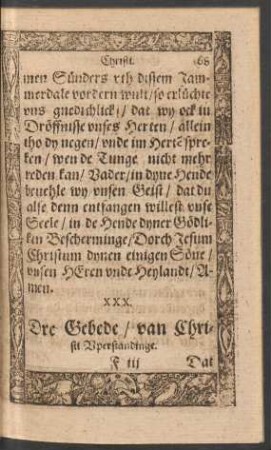 Christi. 68
men Sünders vth dissem Jam-
merdale vordern wult / so erlüchte
vns gnedichlick / dat wy ock in
Dröffnisse vnses Herten / allein
tho dy negen / vnde im Hertē spre-
ken / wen de Tunge nicht mehr
reden kan / Vader / in dyne Hende
beuehle wy vnsen Geist / dat du
alse denn entfangen willest vnse
Seele / in de Hende dyner Gödli-
ken Bescherminge / Dorch Jesum
Christum dynen einigen Söne /
vnsen HEren vnde Heylandt / A-
men.
XXX.
Dre Gebede / van Chri-
sti Vperstandinge.
F iij Dat